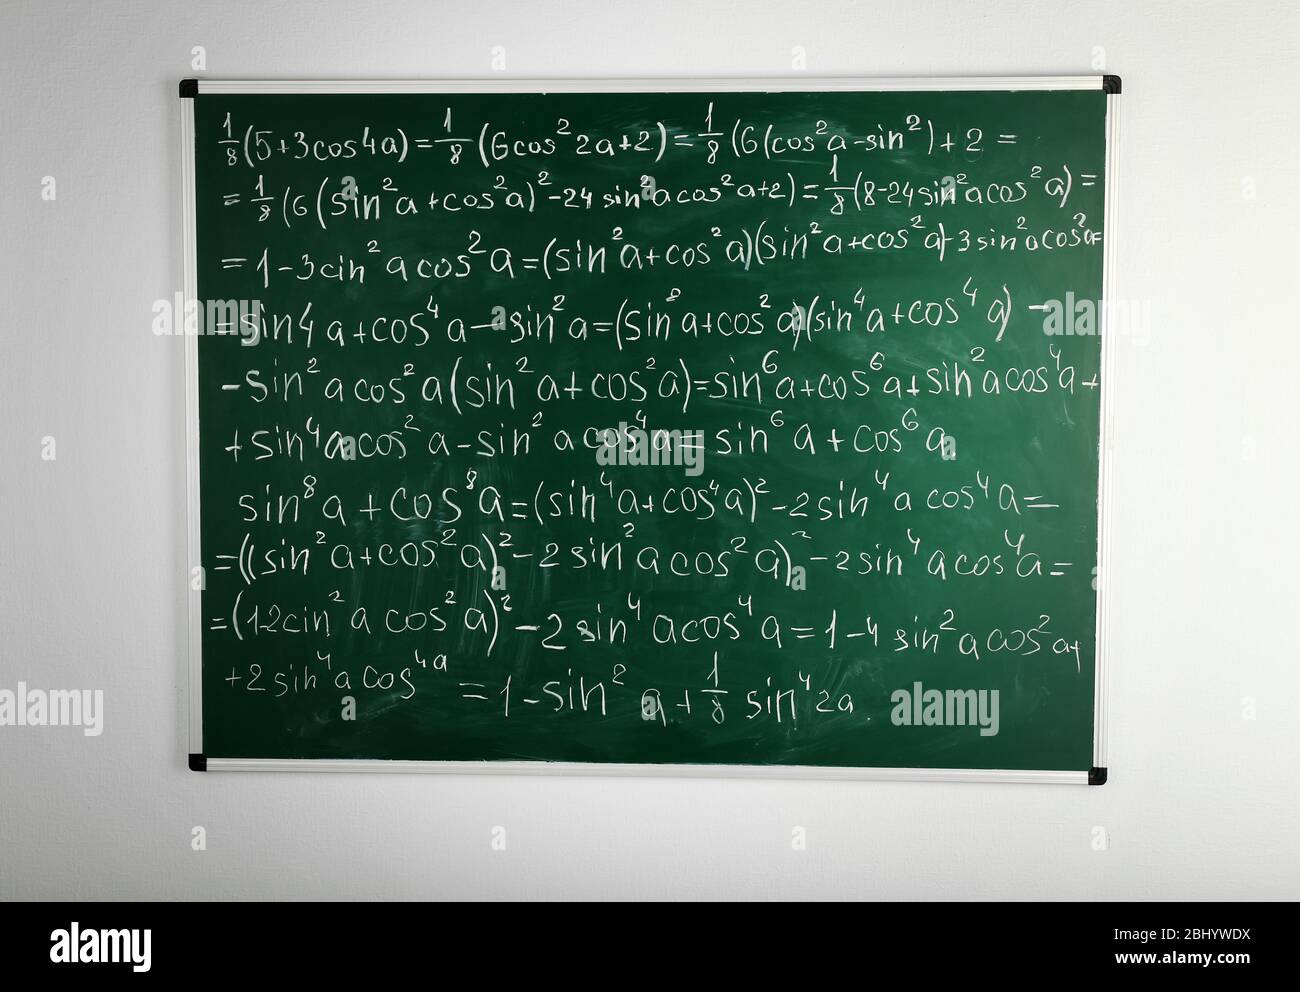 1/8(5+3cos4a)=1/8(6cos²2a+2)=1/8(6(cos²a-sin²)+2=
=1/8(6(sin²a+cos²a)²-24sin²acos²a+2)=1/8(8-24sin²acos²a)=
=1-3cin²acos²a=(sin²a+cos²a)(sin²a+cos²a)-3sin²acos²a=
=sin4a+cos⁴a-sin²a=(sin⁸a+cos²a)(sin⁴a+cos⁴a)-
-sin²acos²a(sin²a+cos²a)=sin⁶a+cos⁶a+sin²acos⁴a+
+sin⁴acos²a-sin²acos⁴a=sin⁶a+cos⁶a
sin⁸a+cos⁸a=(sin⁴a+cos⁴a)²-2sin⁴acos⁴a=
=((sin²a+cos²a)²-2sin²acos²a)²-2sin⁴acos⁴a=
=(1-2cin²acos²a)²-2sin⁴acos⁴a=1-4sin²acos²a+
+2sin⁴acos⁴ᵃ=1-sin²a+1/8sin⁴2a
alamy
Image ID: 2BHYWDX
www.alamy.com